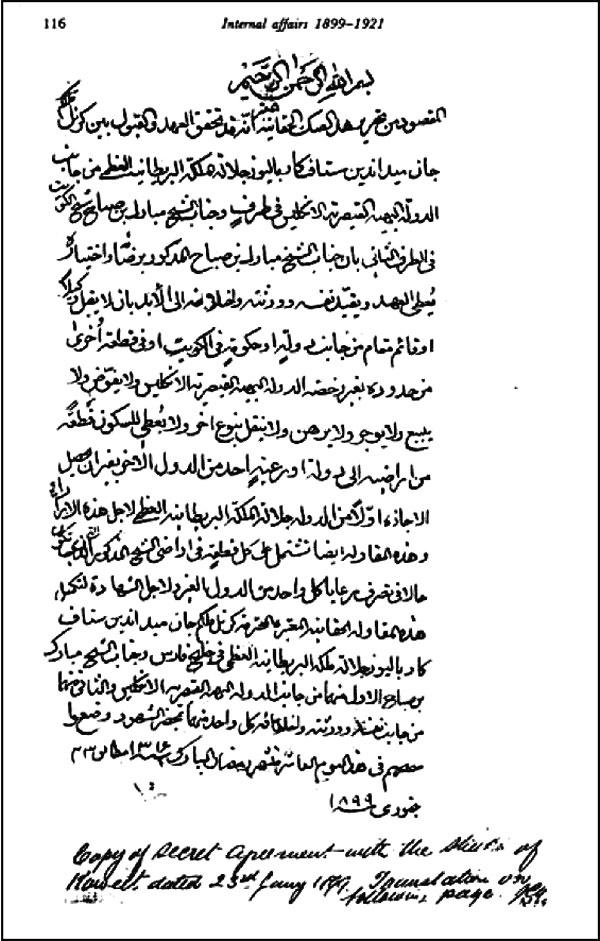 116 Internal affairs 1899–1921
بسم الله الرحمن الرحيم
المقصود من تحرير هذ الصك الحقانية هو انه قد تحقق العهد والقبول بين كرنل ملكم
جان ميد اندين ستاف كار باليوز جلالة ملكة البريطانية العظمى من جانب
الدولة البهية القيصرية الانكليس في طرف وجناب الشيخ مبارك بن صباح شيخ الكويت
في الطرف الثاني بان جناب الشيخ مبارك بن صباح المذكور برضاه واختياره
يُعطي العهد ويقيد نفسه وورثته واخلافه الى الأبد بان لا يقبل وكيلا
او قائم مقام من جانب دولةٍ او حكومةٍ في الكويت او في قطعة اُخرى
من حدوده بغير رخصة الدولة البهية القيصرية الانكليس ولا يفوّض ولا
يبيع ولا يوجر ولا يرهن ولا ينقل بنوع اخر ولا يُعطي للسكون قُطعةً
من اراضيه الى دولة او رعية احد من الدول الأخرى بغير ان يحصل
الاجازه اولاً من الدولة جلالة الملكة البريطانية العظمى لاجل هذه
وهذه المقاولة ايضا تشتمل على كل قطعة في اراضي الشيخ المذكور
حالا في تصرف رعايا كل واحد من الدول بالغير ولاجل الشهادة لتكميل
هذه المقاولة الحقانية كرنل ملكم جان ميد اندين ستاف
كار باليوز جلالة ملكة البريطانية العظمى في خليج فارس وجناب الشيخ مبارك
بن صباح الاول منهما من جانب الدولة البهية القيصرية الانكليس والثاني منهما
من جانب نفسه وورثته واخلافه كل واحد منهما بمحضر الشهود وضعوا
في هذ اليوم العاشر شهر رمضان المبارك سنة ١٣١٦ مطابق ٢٣
جنوري سنة ١٨٩٩
Copy of Secret Agreement with the Sheikh of
Koweit dated 23rd Jany 1899. Translation on
following page.